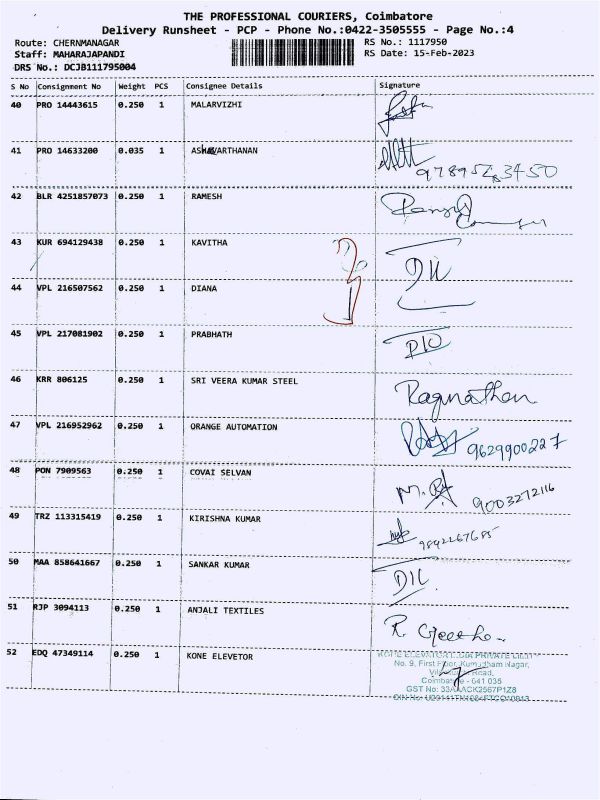 THE PROFESSIONAL COURIERS, Coimbatore
Delivery Runsheet - PCP - Phone No.:0422-3505555 - Page No.:4
Route: CHERNMANAGAR RS No.: 1117950
Staff: MAHARAJAPANDI RS Date: 15-Feb-2023
DRS No.: DCJB111795004
S No Consignment No Weight PCS Consignee Details Signature
40 PRO 14443615 0.250 1 MALARVIZHI
41 PRO 14633200 0.035 1
42 BLR 4251857073 0.250 1 RAMESH
43 KUR 694129438 0.250 1 KAVITHA
44 VPL 216507562 0.250 1 DIANA
45 VPL 217081902 0.250 1 PRABHATH
46 KRR 806125 0.250 1 SRI VEERA KUMAR STEEL Ragunathan
47 VPL 216952962 0.250 1 ORANGE AUTOMATION 9629900227
48 PON 7909563 0.250 1 COVAI SELVAN 9003272116
49 TRZ 113315419 0.250 1 KIRISHNA KUMAR 9842267685
50 MAA 858641667 0.250 1 SANKAR KUMAR
51 RJP 3094113 0.250 1 ANJALI TEXTILES R. Geetha
52 EDQ 47349114 0.250 1 KONE ELEVETOR
No. 9, First Floor, Kumudham Nagar,
Road,
Coimbatore - 641 035
GST No: 33AAACK2567P1Z8